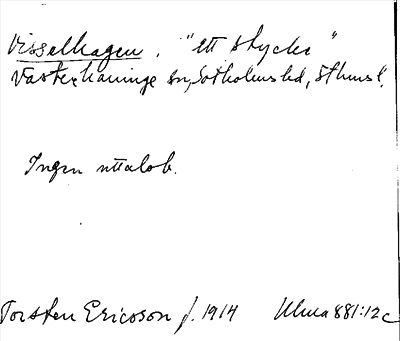 Visselhagen, "ett stycke"
Västerhaninge sn, Sotholms hd, Sthms l.
Ingen uttalob.
Torsten Ericsson f. 1914 Ulma 881:12c